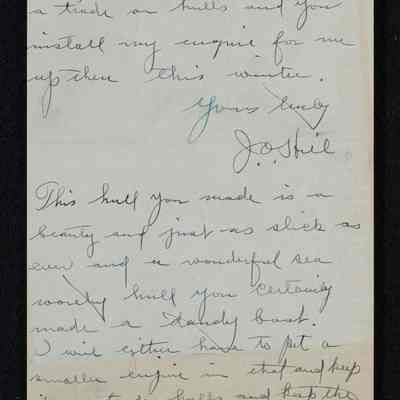 a trade on hulls and you
install my engine for me
up there this winter.
Yours truly
J.O. Hill
This hull you made is a
beauty and just as slick as
ever and a wonderful sea
worthy hull you certainly
made a dandy boat.
I will either have to put a
smaller engine in that and keep
it or trade hulls and keep the